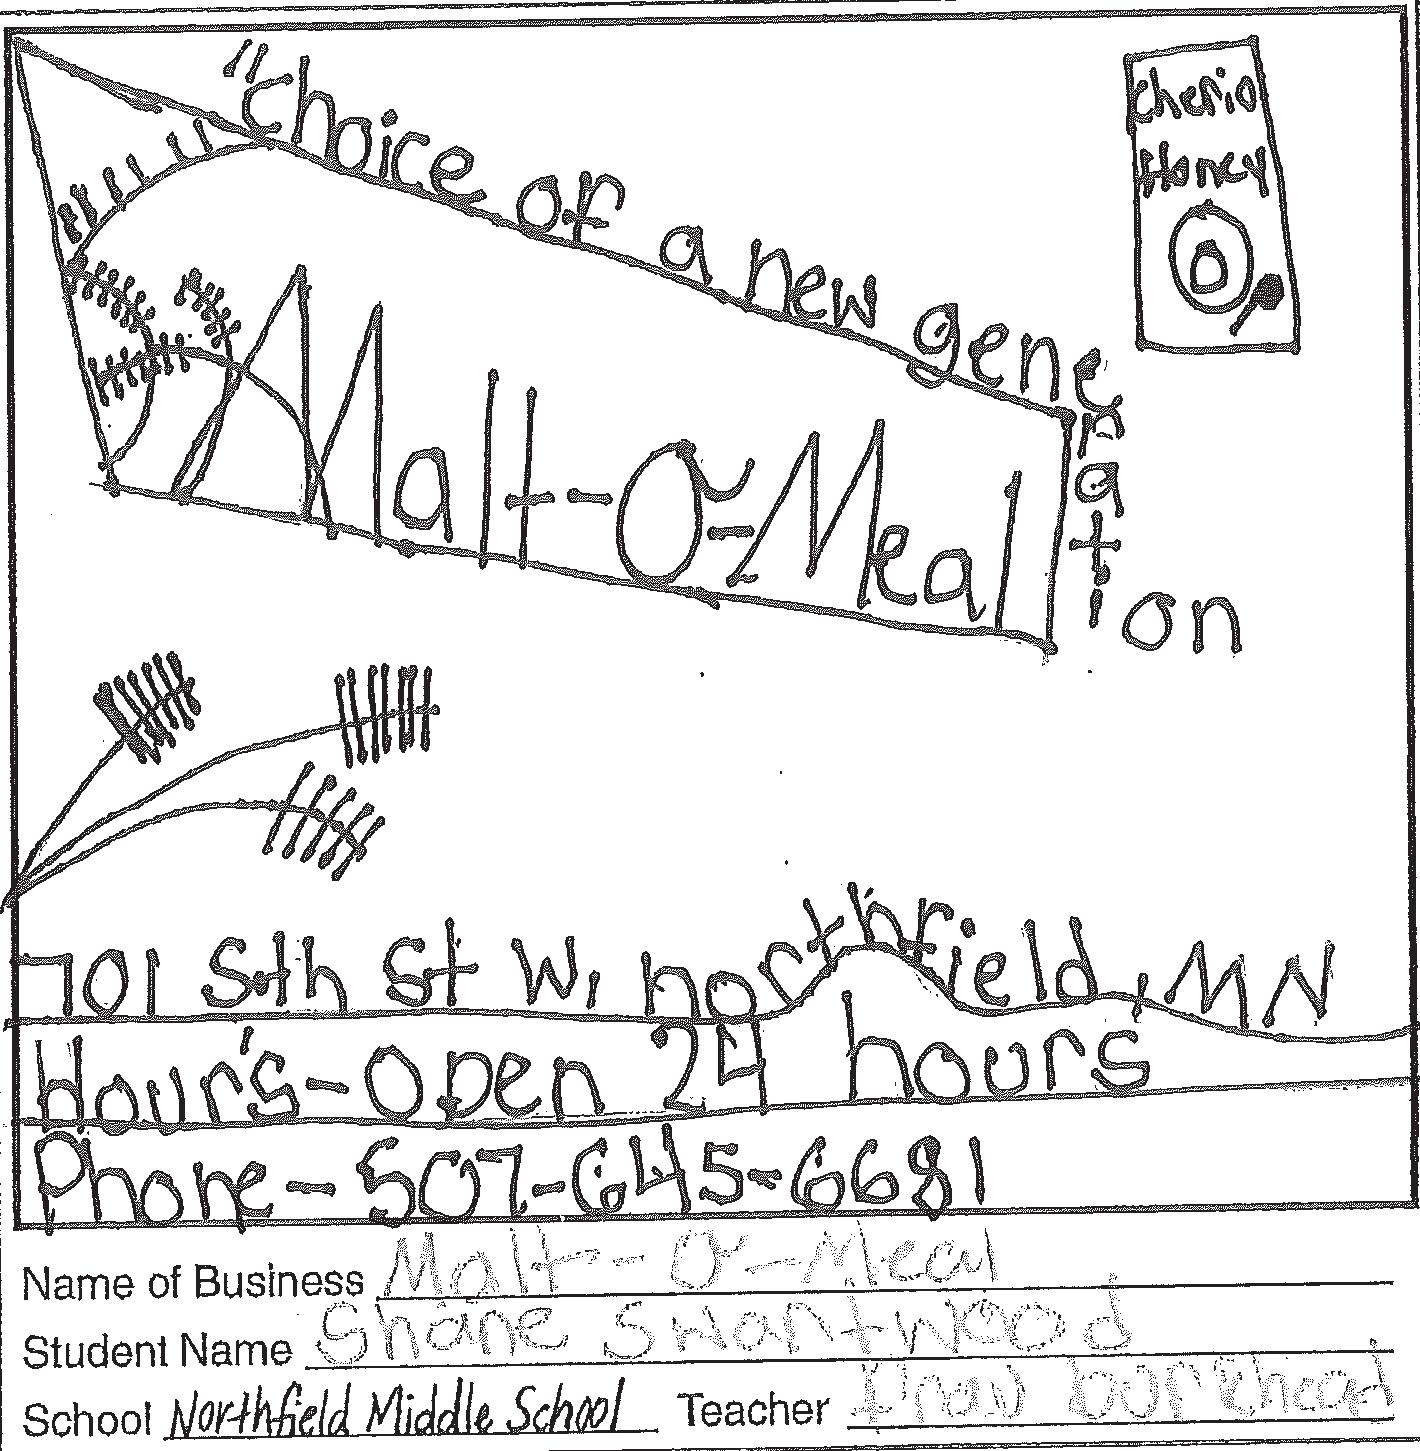 "Choice of a new generation
Cherio
Honey
O
Malt-O-Meal
701 5th St W, northfield, MN
Hour's-Open 24 hours
Phone-507-645-6681
Name of Business Malt-O-Meal
Student Name Shane Swartwood
School Northfield Middle School Teacher